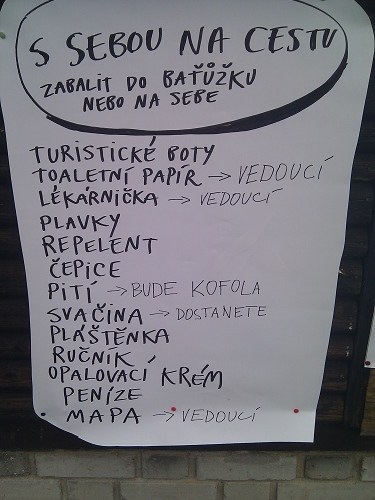 S SEBOU NA CESTU
ZABALIT DO BAŤŮŽKU
NEBO NA SEBE
TURISTICKÉ BOTY
TOALETNÍ PAPÍR → VEDOUCÍ
LÉKÁRNIČKA → VEDOUCÍ
PLAVKY
REPELENT
ČEPICE
PITÍ → BUDE KOFOLA
SVAČINA → DOSTANETE
PLÁŠTĚNKA
RUČNÍK
OPALOVACÍ KRÉM
PENÍZE
MAPA → VEDOUCÍ